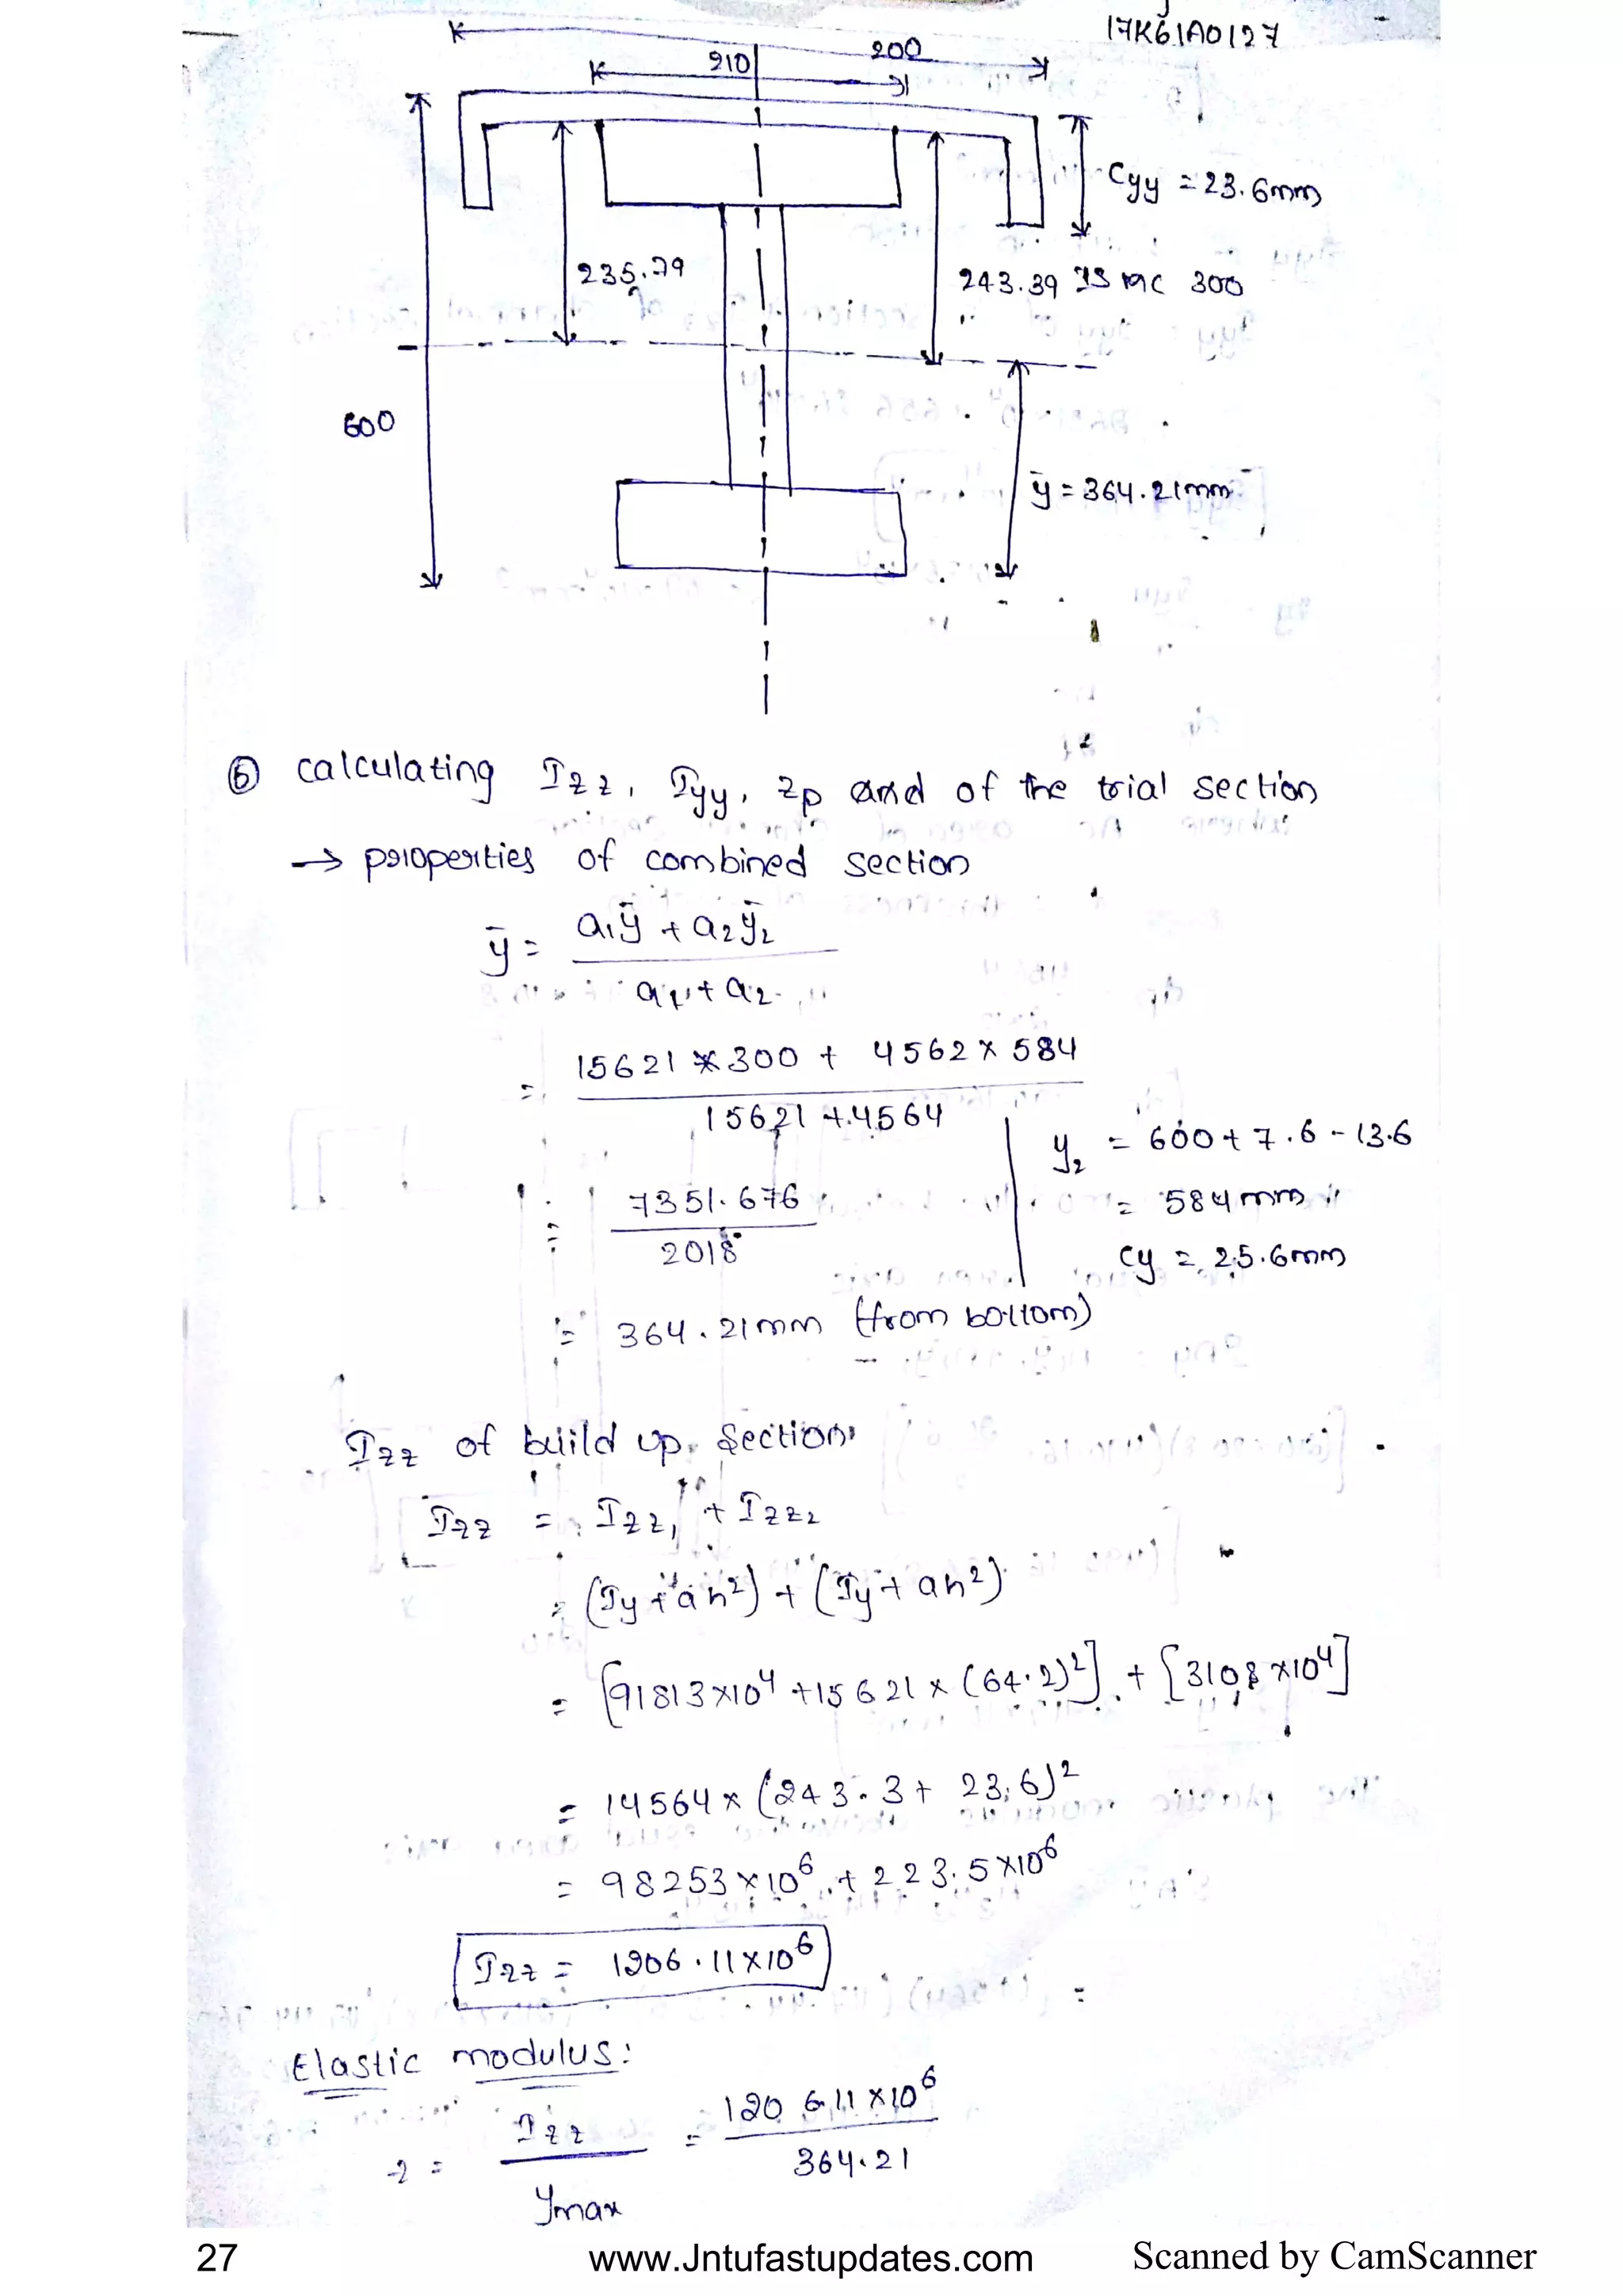 17K61A0127
200
210
Cyy = 23.6mm
235.79
243.39 IS MC 300
600
ȳ = 364.21mm
⑥ calculating Izz, Iyy, Zp and of the trial section
→ properties of combined section
ȳ = a₁ȳ + a₂ȳ₂
a₁ + a₂
= 15621 × 300 + 4562 × 584
15621 + 4564
y₂ = 600 + 7.6 - 13.6
= 7351.676
2018
= 584mm
Cy = 25.6mm
= 364.21mm (from bottom)
Izz of build up section
Izz = Izz₁ + Izz₂
= (Iy + ah²) + (Iy + ah²)
= [91813×10⁴ + 15621 × (64.2)²] + [3108×10⁴]
= 14564 × (243.3 + 23.6)²
= 98253×10⁶ + 223.5×10⁶
Izz = 1206.11×10⁶
Elastic modulus:
z = Izz = 120 6.11×10⁶
ymax 364.21
27 www.Jntufastupdates.com Scanned by CamScanner